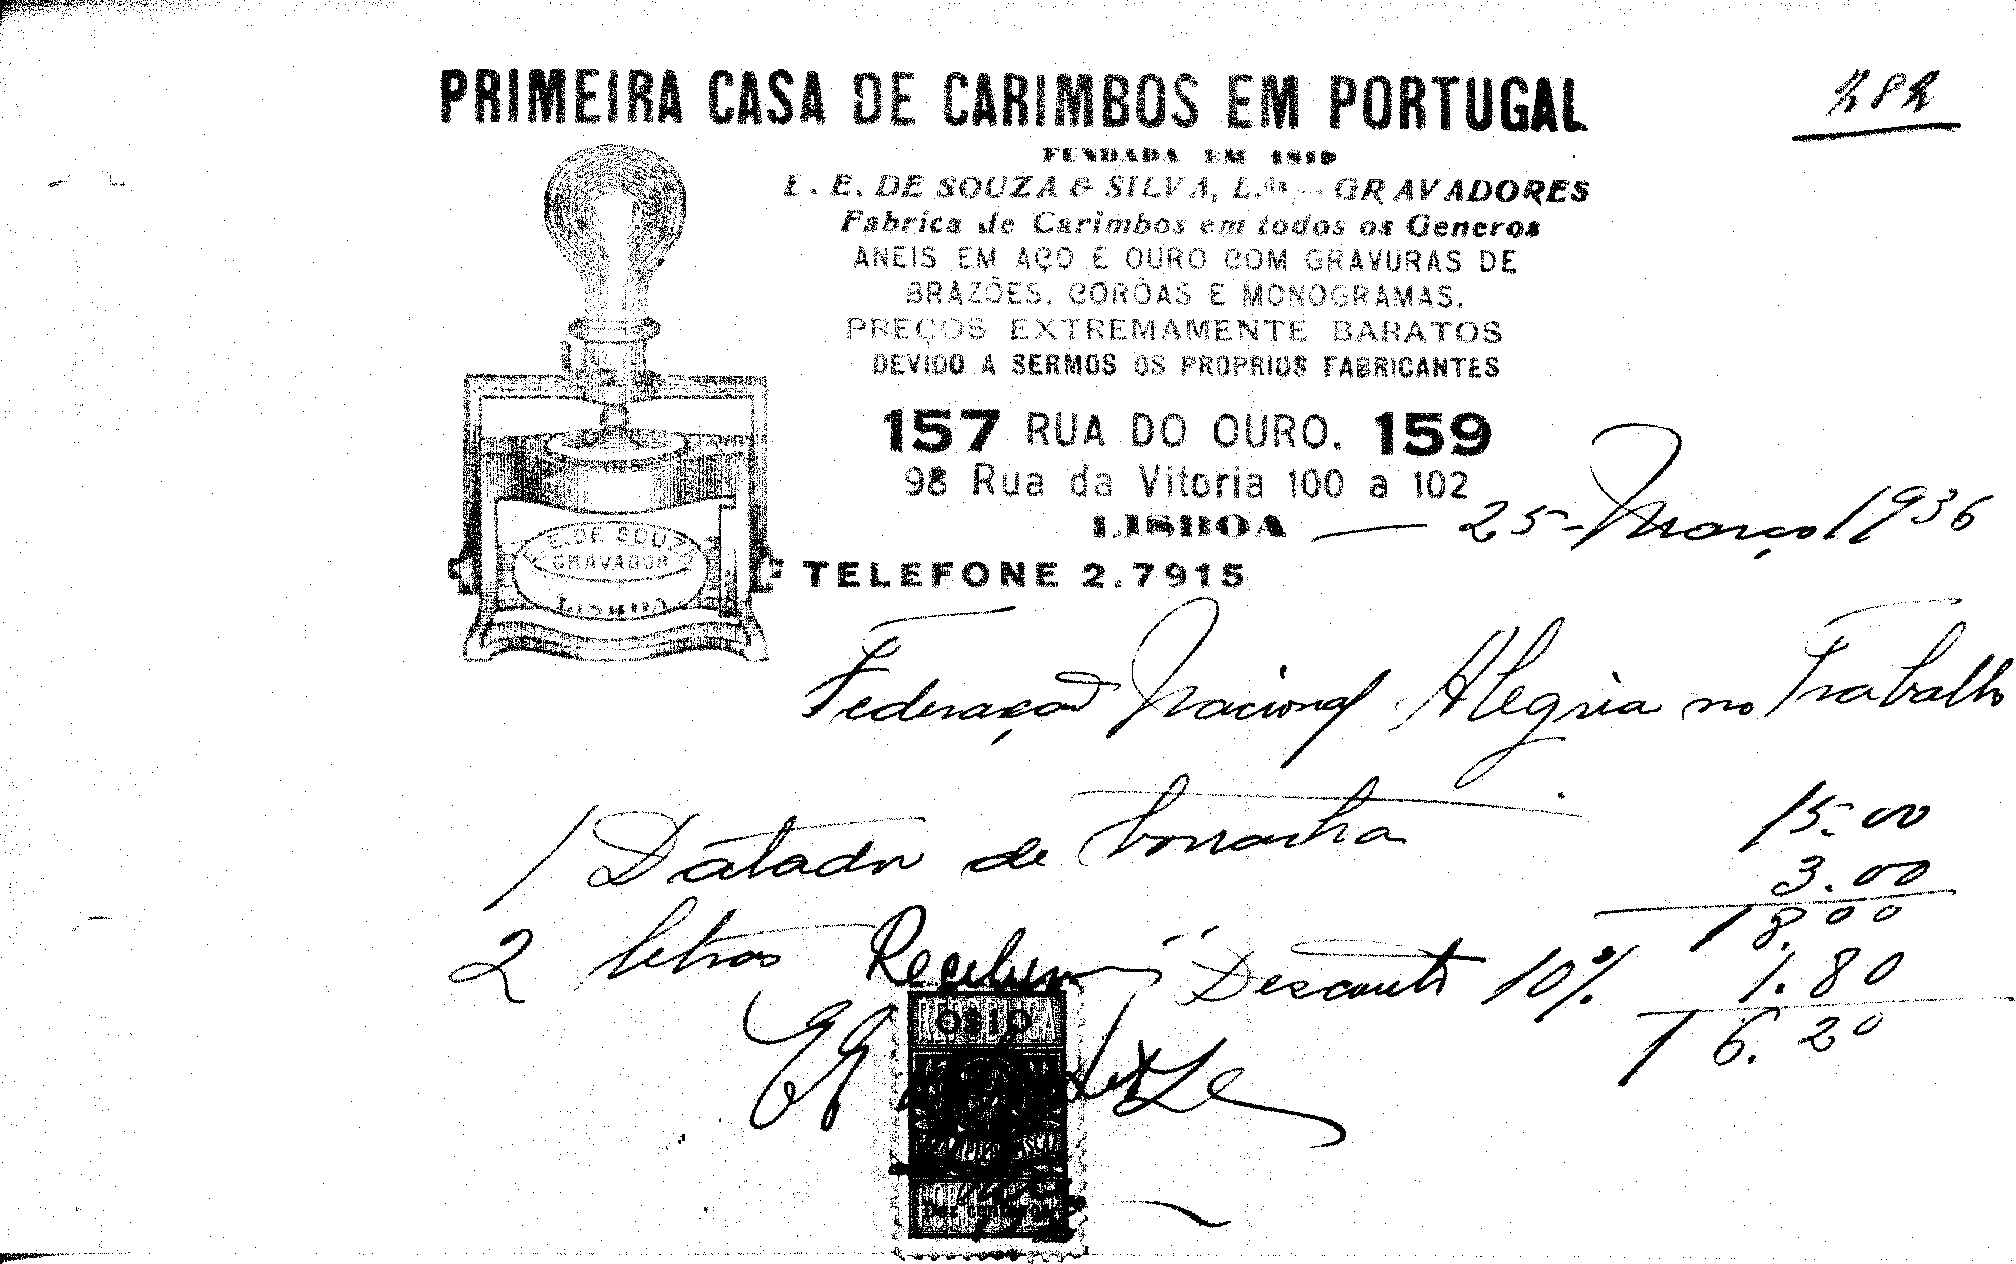 PRIMEIRA CASA DE CARIMBOS EM PORTUGAL
FUNDADA EM
E. DE SOUZA & SILVA, L.da — GRAVADORES
Fabrica de Carimbos em todos os Generos
ANEIS EM AÇO E OURO COM GRAVURAS DE
BRAZÕES, CORÔAS E MONOGRAMAS.
PREÇOS EXTREMAMENTE BARATOS
DEVIDO A SERMOS OS PROPRIOS FABRICANTES
157 RUA DO OURO, 159
98 Rua da Vitoria 100 a 102
LISBOA — 25-Março 1936
E. DE SOUZA
GRAVADOR
TELEFONE 2.7915
Federação Nacional Alegria no Trabalho
1 Datador de borracha 15.00
2 letras 3.00
18.00
Recebemos
Desconto 10% 1.80
16.20